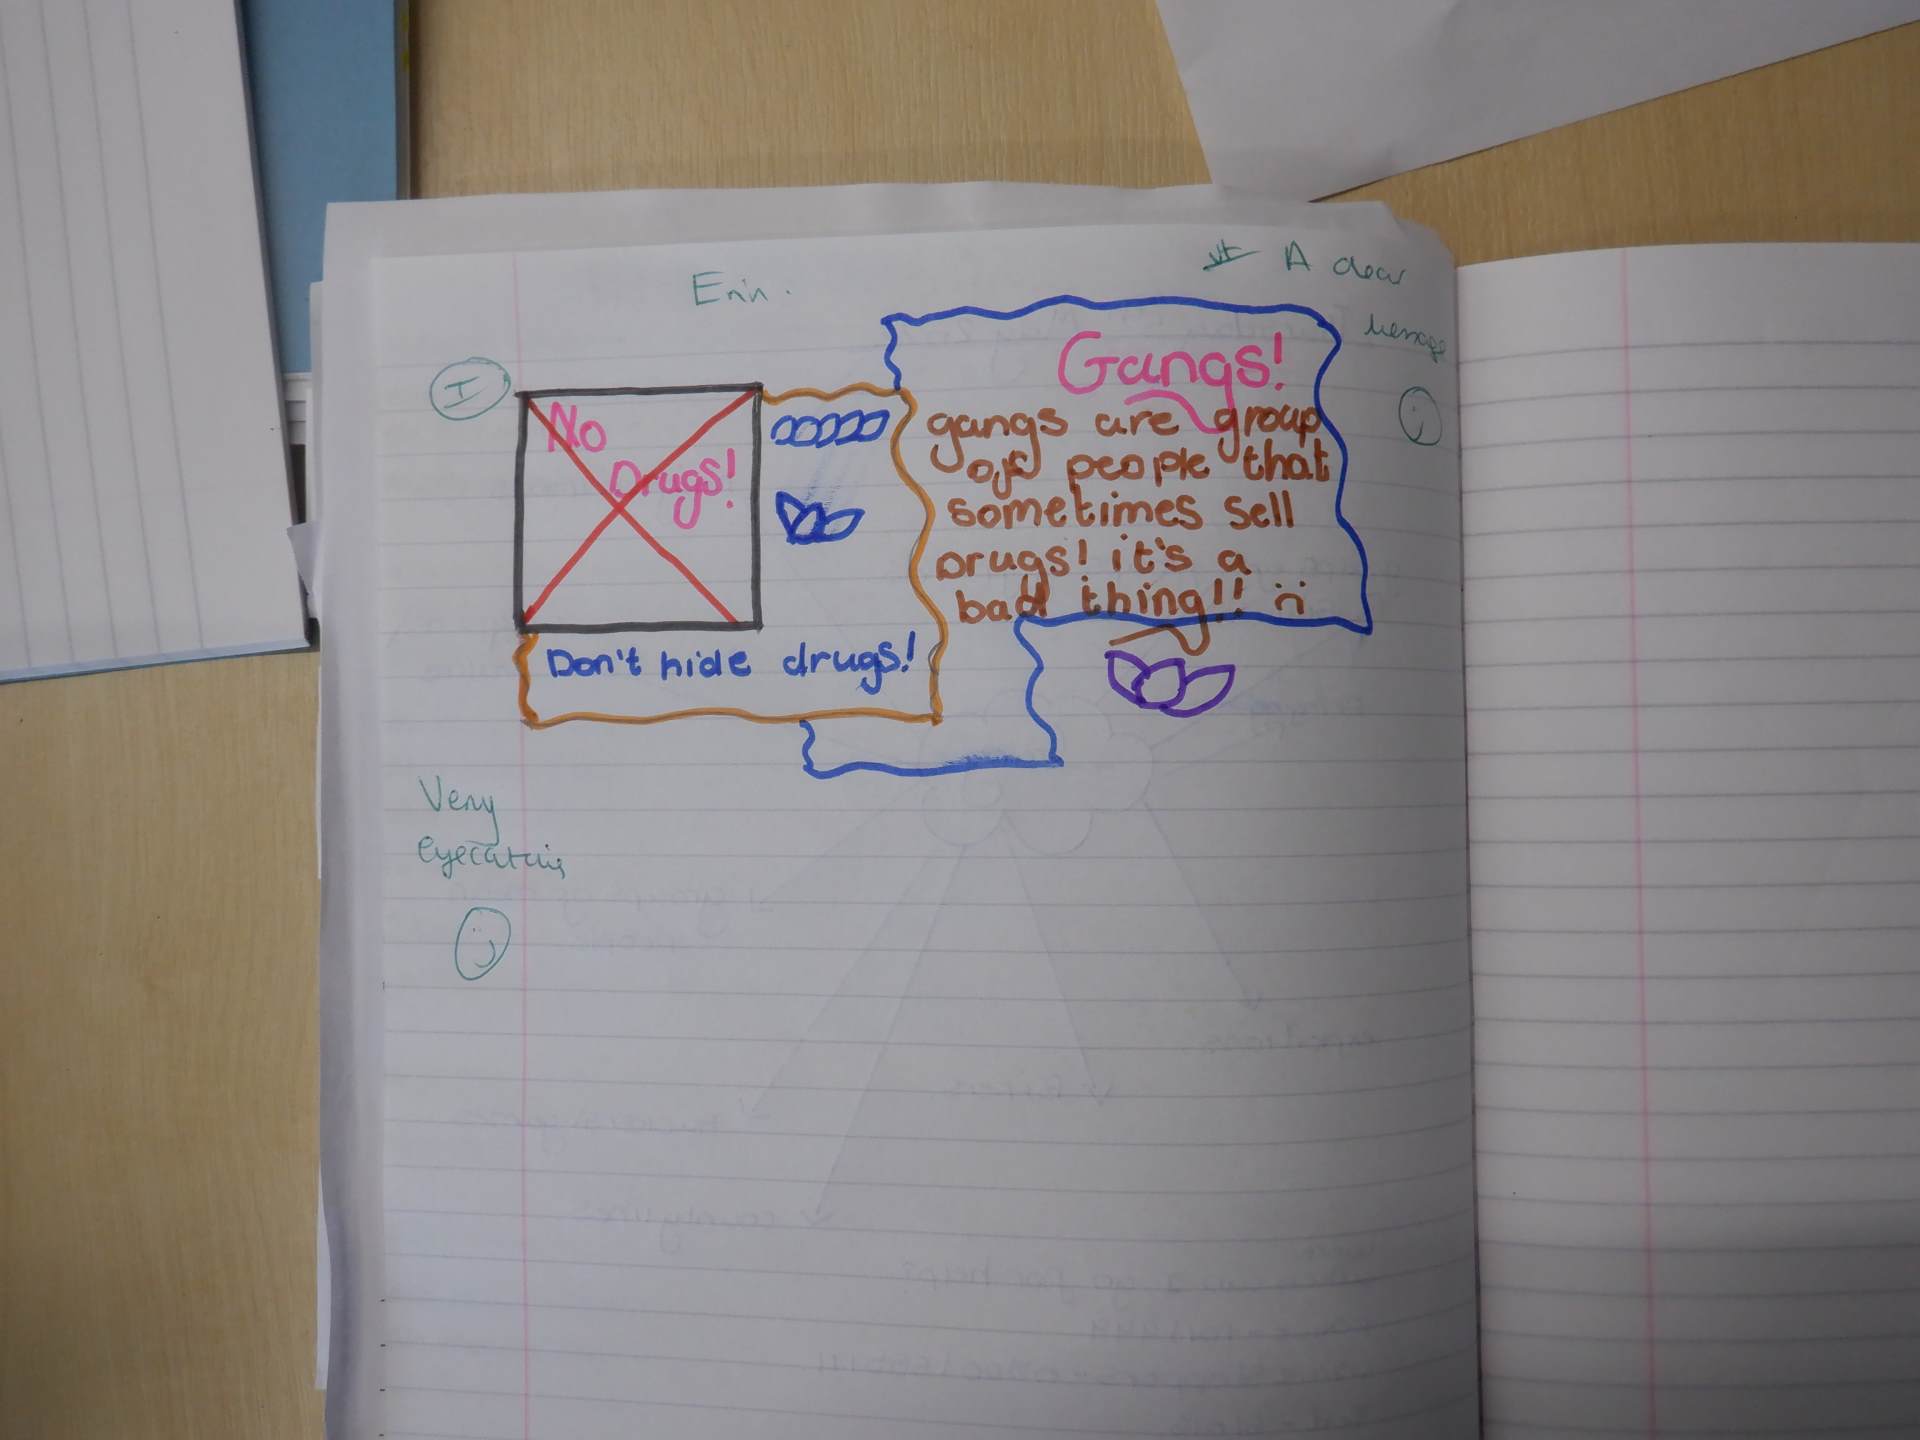 Erin.
A clear
message
I
No
Drugs!
Gangs!
gangs are group
of people that
sometimes sell
Drugs! it's a
bad thing!!
Don't hide drugs!
Very